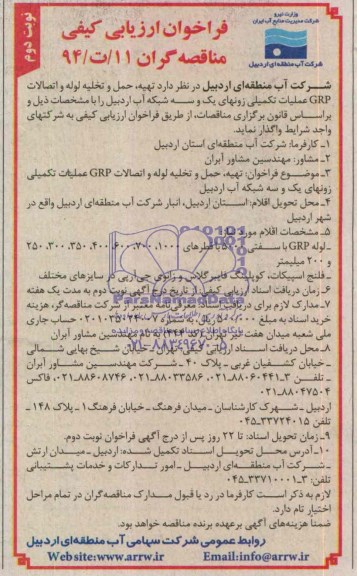 نوبت دوم
فراخوان ارزیابی کیفی
مناقصه گران ۱۱/ت/۹۴
وزارت نیرو
شرکت مدیریت منابع آب ایران
شرکت آب منطقه‌ای اردبیل
شرکت آب منطقه‌ای اردبیل در نظر دارد تهیه، حمل و تخلیه لوله و اتصالات
GRP عملیات تکمیلی زونهای یک و سه شبکه آب اردبیل را با مشخصات ذیل و
براساس قانون برگزاری مناقصات، از طریق فراخوان ارزیابی کیفی به شرکتهای
واجد شرایط واگذار نماید.
۱- کارفرما: شرکت آب منطقه‌ای استان اردبیل
۲- مشاور: مهندسین مشاور آبران
۳- موضوع فراخوان: تهیه، حمل و تخلیه لوله و اتصالات GRP عملیات تکمیلی
زونهای یک و سه شبکه آب اردبیل
۴- محل تحویل اقلام: استان اردبیل، انبار شرکت آب منطقه‌ای اردبیل واقع در
شهر اردبیل
۵- مشخصات اقلام مورد
- لوله GRP با سفتی ۵۰۰۰ با قطرهای ۱۰۰۰، ۷۰۰، ۶۰۰، ۴۰۰، ۳۵۰، ۳۰۰، ۲۵۰
و ۲۰۰ میلیمتر
- فلنج اسپیکات، کوپلینگ فایبرگلاس و زانوی جی آرپی در سایزهای مختلف
۶- زمان دریافت اسناد ارزیابی کیفی: از تاریخ درج آگهی نوبت دوم به مدت یک هفته
۷- مدارک لازم برای دریافت اسناد: معرفی نامه معتبر از شرکت مناقصه‌گر، هزینه
خرید اسناد به مبلغ ریال به شماره حساب جاری
ملی شعبه میدان هفت تیر تهران کد مهندسین مشاور آبران
۸- محل دریافت اسناد ارزیابی کیفی: تهران- خیابان شیخ بهایی شمالی
- خیابان کشفیان غربی - پلاک ۴۰ - شرکت مهندسین مشاور آبران
- تلفن ۳-۸۸۰۶۰۴۴۱-۰۲۱، ۸۸۰۳۳۵۸۶-۰۲۱، ۸۸۶۰۸۷۴۶-۰۲۱، فاکس
۸۸۰۴۷۵۰۴-۰۲۱
اردبیل - شهرک کارشناسان - میدان فرهنگ - خیابان فرهنگ ۱ - پلاک ۱۴۸ -
تلفن ۳۳۷۲۴۰۱۵-۰۴۵
۹- زمان تحویل اسناد: تا ۲۲ روز پس از درج آگهی فراخوان نوبت دوم.
۱۰- آدرس محل تحویل اسناد تکمیل شده: اردبیل - میدان ارتش
- شرکت آب منطقه‌ای اردبیل - امور تدارکات و خدمات پشتیبانی
تلفن: ۳-۳۳۷۱۰۰۰۱-۰۴۵
لازم به ذکر است کارفرما در رد یا قبول مدارک مناقصه‌گران در تمام مراحل
اختیار تام دارد.
ضمنا هزینه‌های آگهی برعهده برنده مناقصه خواهد بود.
روابط عمومی شرکت سهامی آب منطقه‌ای اردبیل
Web site:www.arrw.ir Email:info@arrw.ir
ParsNamadData